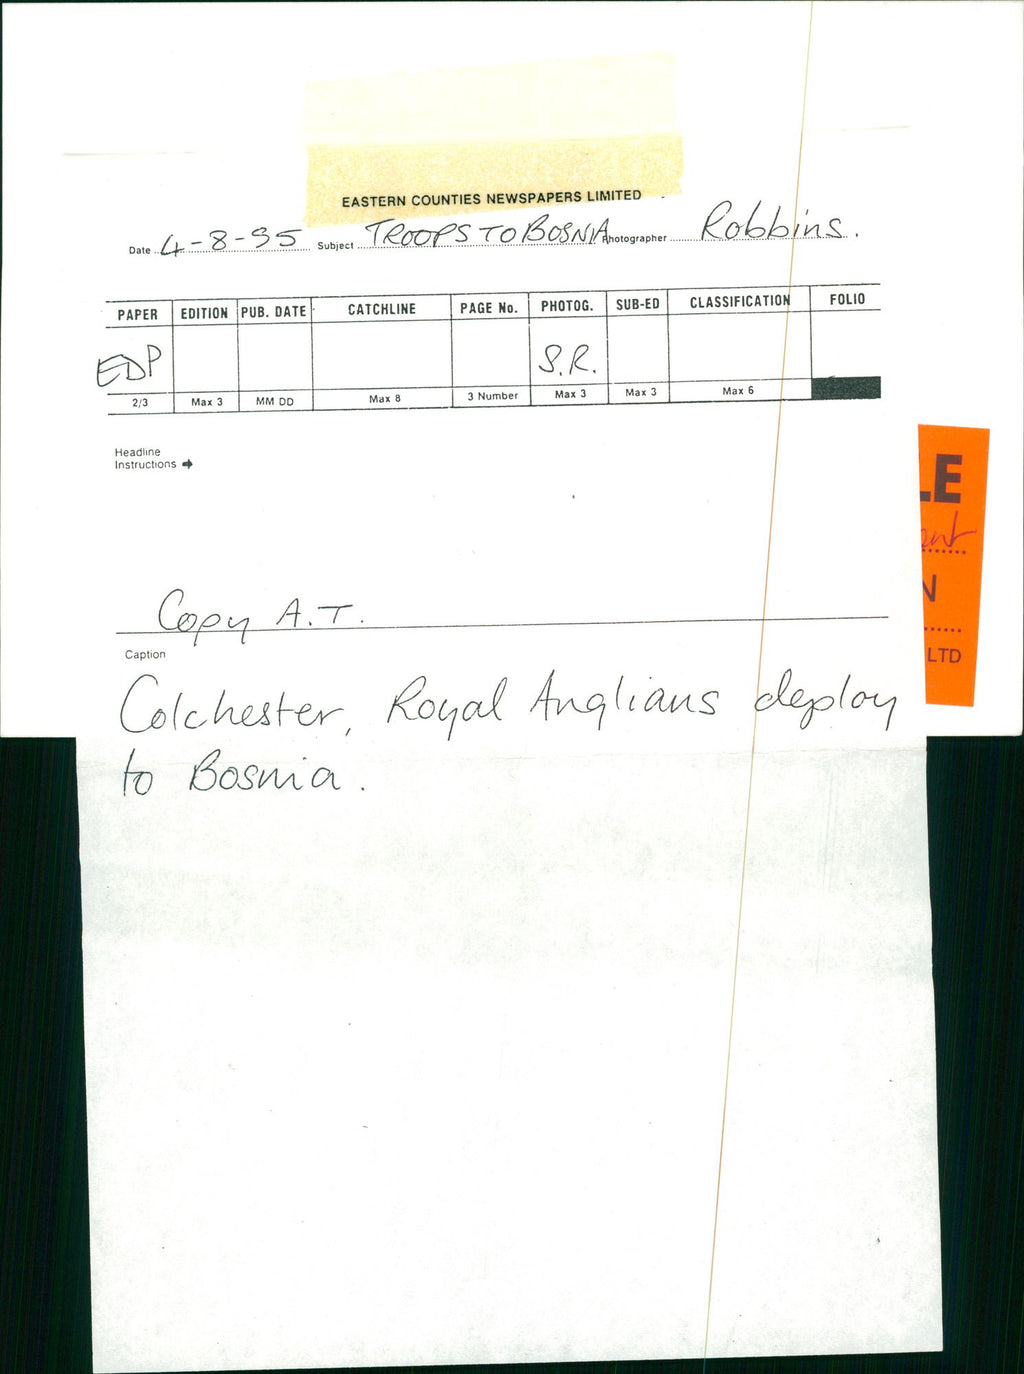 EASTERN COUNTIES NEWSPAPERS LIMITED
Date 4-8-95 Subject TROOPS TO BOSNIA Photographer Robbins.
PAPER EDITION PUB. DATE CATCHLINE PAGE No. PHOTOG. SUB-ED CLASSIFICATION FOLIO
EDP S.R.
2/3 Max 3 MM DD Max 8 3 Number Max 3 Max 3 Max 6
Headline
Instructions
LE
N
LTD
Copy A.T.
Caption
Colchester, Royal Anglians deploy
to Bosnia.